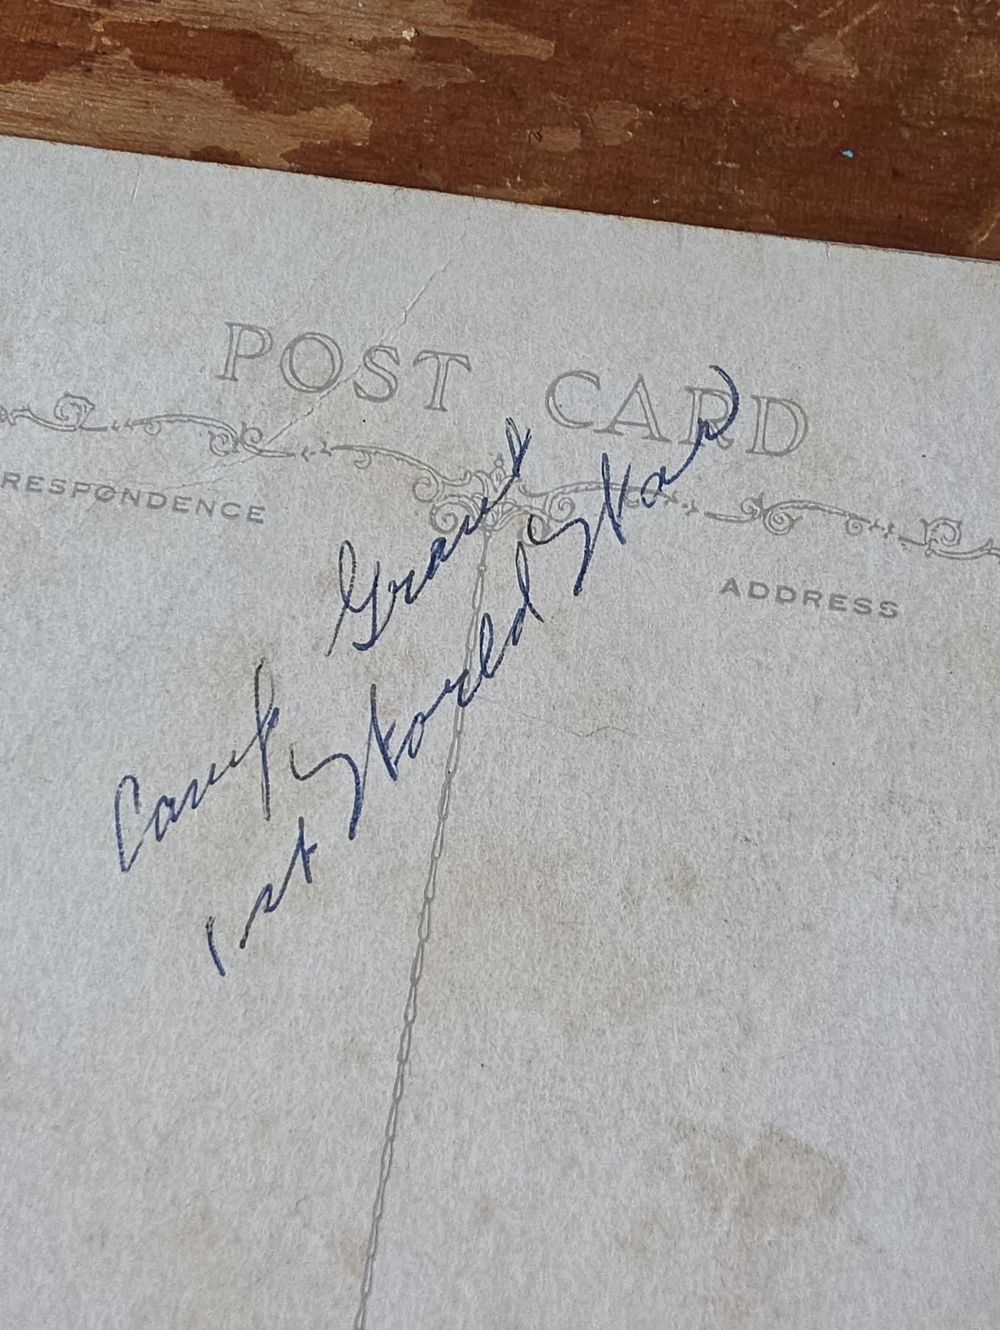 POST CARD
RESPONDENCE
ADDRESS
Camp Grant
1st World War